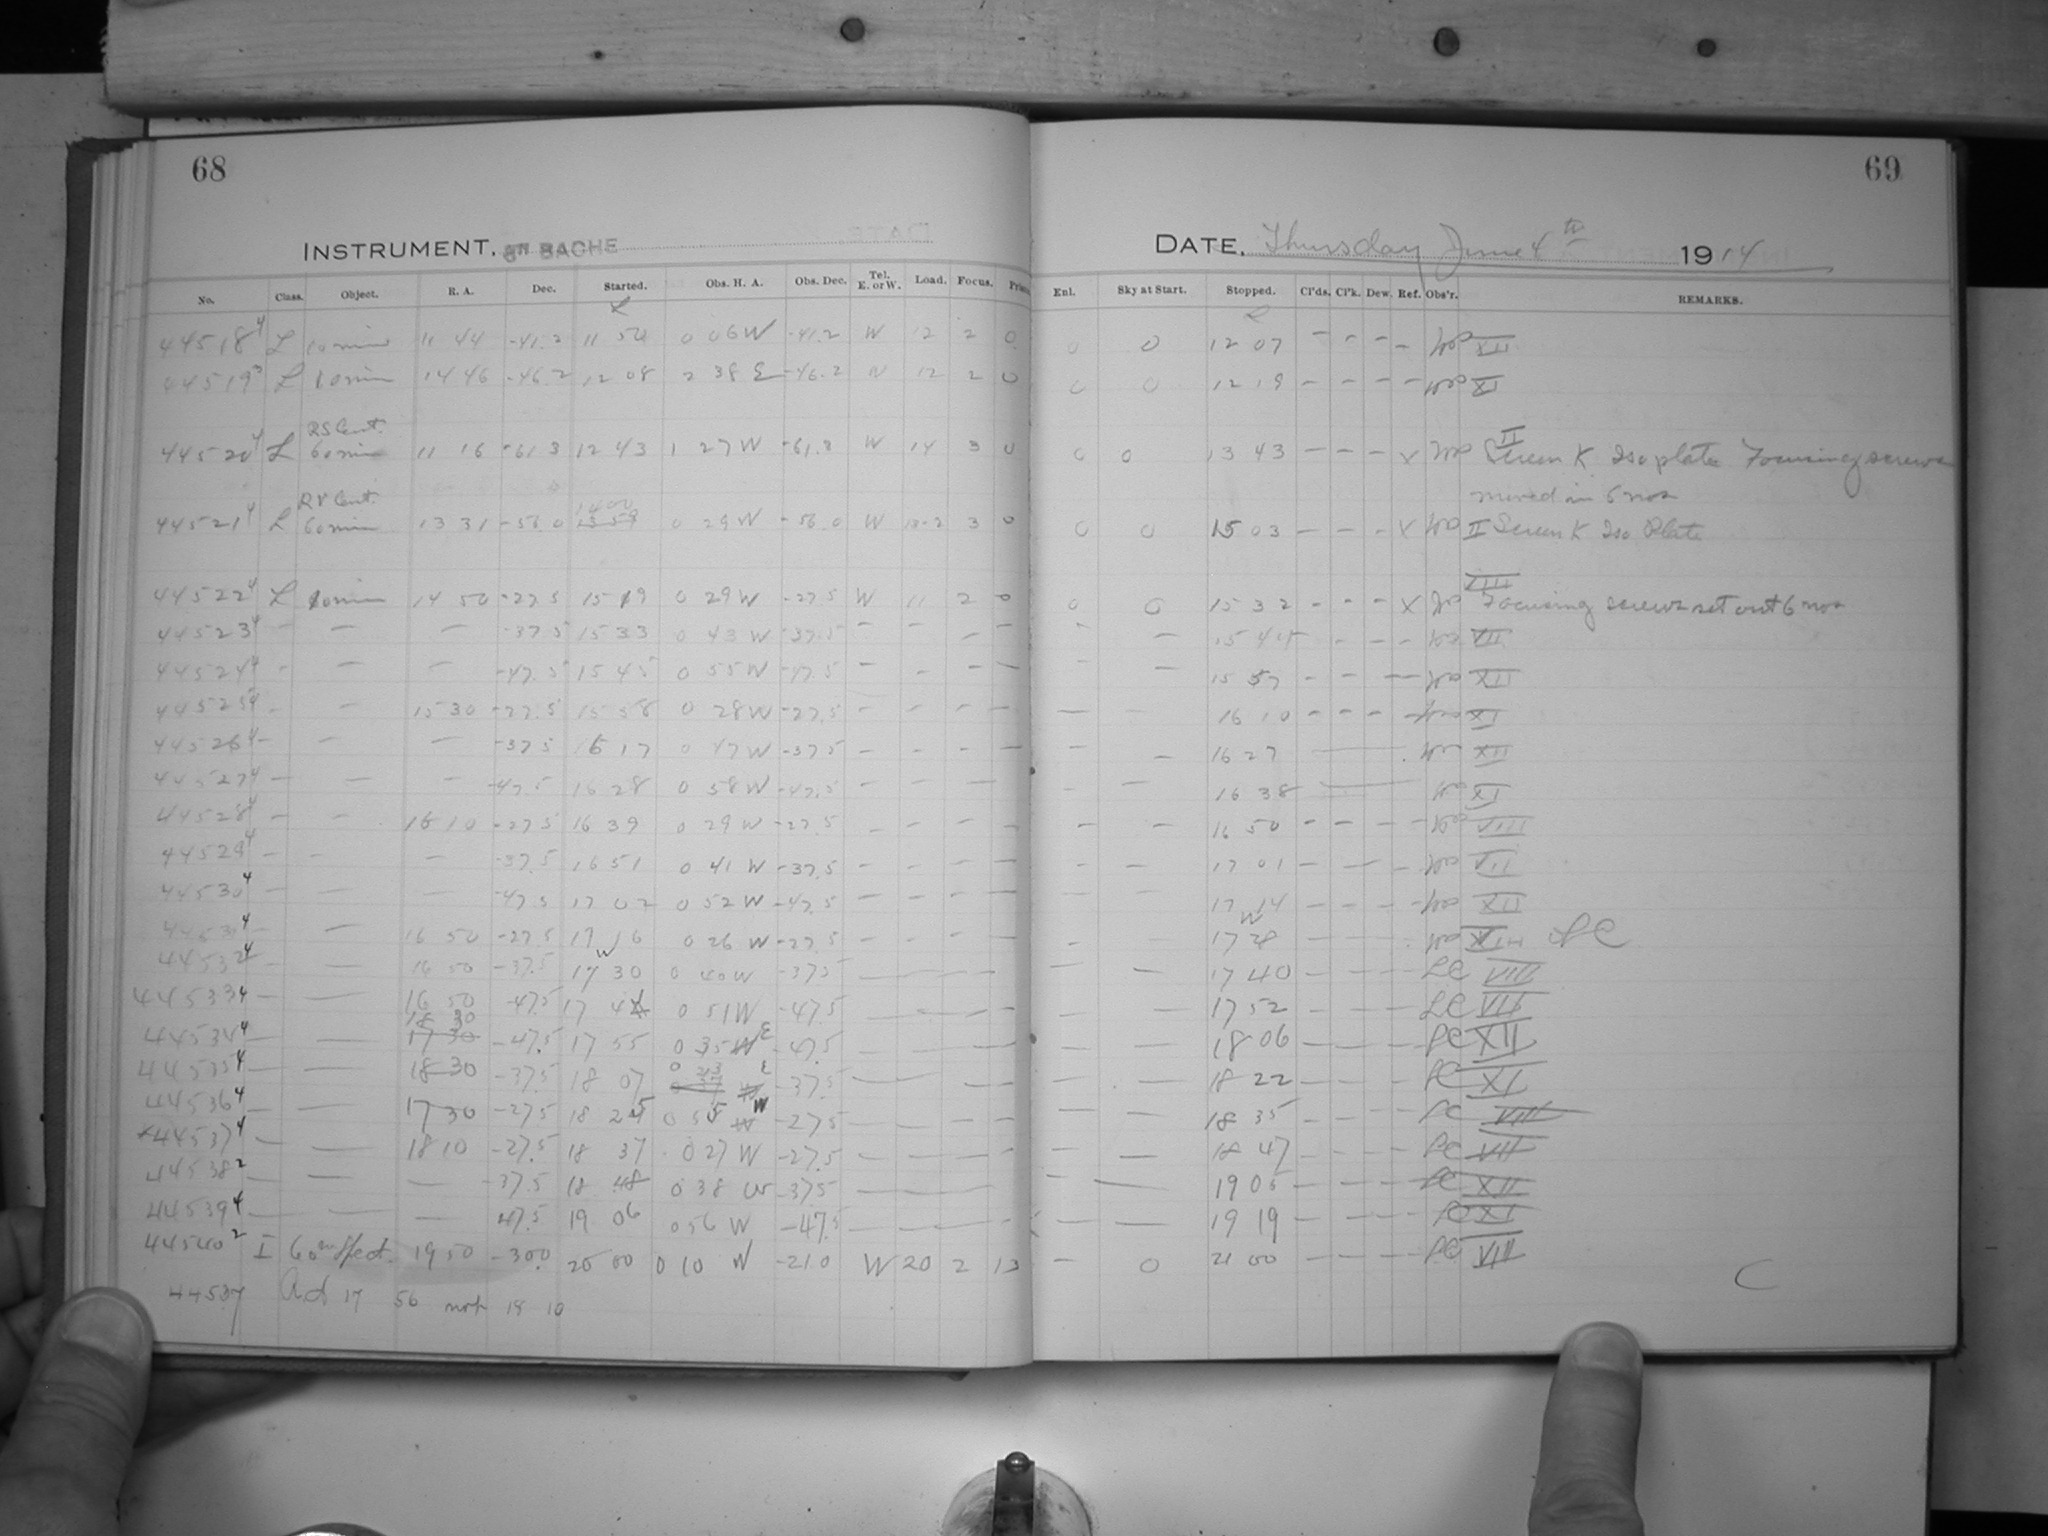 68
69
INSTRUMENT. 8in BACHE
DATE. Thursday June 4th 1914
No. Class. Object. R. A. Dec. Started. Obs. H. A. Obs. Dec. Tel. E. or W. Load. Focus. Enl. Sky at Start. Stopped. Cl'ds. Cl'k. Dew. Ref. Obs'r. REMARKS.
44518 4 L 10 min 11 44 -41.2 11 50 0 06 W -41.2 W 12 2 0 0 0 12 07 - - - - XII
44519 3 L 10 min 14 46 -46.2 12 08 2 38 E -46.2 W 12 2 0 0 0 12 19 - - - - IX
RS Cent. II
44520 4 L 60 min 11 16 -61.3 12 43 1 27 W -61.3 W 14 3 0 0 0 13 43 - - - x Screen K Iso plate Focusing screws
moved in 6 nos
RV Cent. 14 00
44521 4 L 60 min 13 31 -56.0 13 59 0 29 W -56.0 W 13.2 3 0 0 0 15 03 - - - x II Screen K Iso Plate
XIII
44522 4 L 10 min 14 50 -27.5 15 19 0 29 W -27.5 W 11 2 0 0 0 15 32 - - - x Focusing screws set out 6 nos
44523 4 - - - -37.5 15 33 0 43 W -37.5 - - - - - - 15 44 - - - VII
44524 4 - - - -47.5 15 45 0 55 W -47.5 - - - - - - 15 57 - - - XII
44525 4 - - 15 30 -27.5 15 58 0 28 W -27.5 - - - - - - 16 10 - - - IX
44526 4 - - - -37.5 16 17 0 47 W -37.5 - - - - - - 16 27 XII
44527 4 - - - -47.5 16 28 0 58 W -47.5 - - - - - - 16 38 XI
44528 4 - - 16 10 -27.5 16 39 0 29 W -27.5 - - - - - - 16 50 - - - - VIII
44529 4 - - - -37.5 16 51 0 41 W -37.5 - - - - - - 17 01 - - - VII
44530 4 - - - -47.5 17 02 0 52 W -47.5 - - - - - - 17 14 - - - - XII
44531 4 - - 16 50 -27.5 17 16 0 26 W -27.5 - - - - - 17 28 - - - LC
44532 4 - - 16 50 -37.5 17 30 0 40 W -37.5 - - - - - 17 40 - - - - LC VIII
44533 4 - - 16 50 -47.5 17 41 0 51 W -47.5 - - - - - 17 52 - - - - LC VII
18 30
44534 4 - - 17 30 -47.5 17 55 0 35 W E -47.5 - - - - - 18 06 - - - - LC XII
44535 4 - - 18 30 -37.5 18 07 0 23 E -37.5 - - - - - 18 22 - - - - LC XI
44536 4 - - 17 30 -27.5 18 25 0 55 W -27.5 - - - - - 18 35 - - - - LC VIII
x44537 4 - - 18 10 -27.5 18 37 0 27 W -27.5 - - - - - 18 47 - - - - LC VII
44538 2 - - - -37.5 18 48 0 38 W -37.5 - - - - - 19 05 - - - - LC XII
44539 4 - - - 47.5 19 06 0 56 W -47.5 - - - - - 19 19 - - - - LC XI
44540 2 I 60m Spect. 19 50 -30.0 20 00 0 10 W -21.0 W 20 2 13 - 0 21 00 - - - - LC VIII
C
44537 17 56 not 18 10